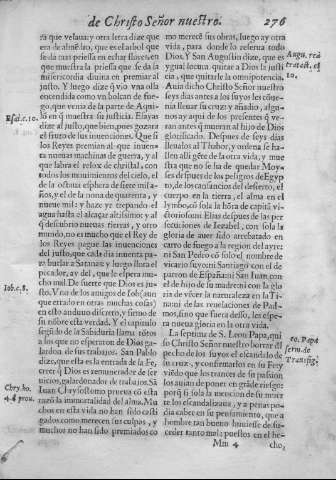 de Christo Señor nuestro. 276
ra que velaua: y otra letra dize que
era de almẽdro, que es el arbol que
se da mas priessa en echar flores: en
que muestra la priessa que se da la
misericordia diuina en premiar al
justo. Y luego dize q̃ vio vna olla
encendida como vn bolcan de fue-
go, que venia de la parte de Aqui-
Esai.c.10.
lõ en q̃ muestra su justicia. Esayas
dize al justo, que bien, pues gozará
el fruto de sus inuenciones. Que si
los Reyes premian al que inuenta
nueuas machinas de guerra, y al
que labra el relox de christal, con
todos los mouimientos del cielo, el
de la octaua esphera de siete mil a-
ños, y el de la nona de quarenta y
nueue mil: y haze yr trepando el
agua hasta el alcaçar altissimo: y al
q̃ descubrio nueuas tierras, y otro
mundo, no es mucho que el Rey de
los Reyes pague las inuenciones
del justo, que cada dia inuenta pa-
ra burlar a Satanas: y luego llora el
pecador, ay del, que le espera mu-
cho mal. De suerte que Dios es ju-
Iob.c.8.
sto. Vno de los amigos de Iob (aun
que errado en otras muchas cosas)
en esto anduuo discreto, y siente de
su nõbre esta verdad. Y el capitulo
segũdo de la Sabiduria llama necios
a los que no esperaron de Dios ga-
lardon de sus trabajos. San Pablo
dize, que esta es la entrada de la Fe,
creer q̃ Dios es remunerador de ser
uicios, galardonador de trabajos. Sã
Chry.ho.
4.d prou.
Iuan Chrysostomo prueua cõ esta
razõ la immortalidad del alma. Mu
chos en esta vida no han sido casti
gados como merecen sus culpas, y
muchos no han sido premiados co
mo merecẽ sus obras, luego ay otra
vida, para donde lo reserua todo
Dios. Y San Augustin dize, que es
ygual locura quitar a Dios la justi
cia, que quitarle la omnipotencia.
Auia dicho Christo Señor nuestro
seys dias antes a los suyos los cõue-
nia lleuar su cruz, y añadio, algu-
nos ay aqui de los presentes q̃ ve-
ran antes q̃ mueran al hijo de Dios
glorificado. Despues de seys dias
lleualos al Thabor, y ordena se ha-
llen alli gẽte de la otra vida, y mue
stra que no se ha de quedar Moy-
ses despues de los peligros de Egyp
to, de los cansancios del desierto, el
cuerpo en la tierra, el alma en el
despues de las per
secuciones de Iezabel, con sola la
gloria de auer sido arrebatado en
carro de fuego a la region del ayre:
ni San Pedro cõ solo el nombre de
vicario suyo: ni Santiago con el de
patron de España: ni San Iuan, con
el de hijo de su madre: ni con la glo
ria de viuer la naturaleza en la Ti-
mos, sino que fuera desso, les espe-
ra nueua gloria en la otra vida.
La septima de S. Leon Papa, qui
so Christo Señor nuestro borrar dl
pecho de los suyos el escandalo de
su cruz, y confirmarlos en su Fe: y
viẽdo que los trances de su passion
los auian de poner en grãde riesgo:
porq̃ si sola la mencion de su muer
te los escandalizaua, y a penas po-
dia caber en su pensamiento, que a
hombre tan bueno huuiesse de su-
ceder tanto mal: puestos en el he-
Mm 4 cho,